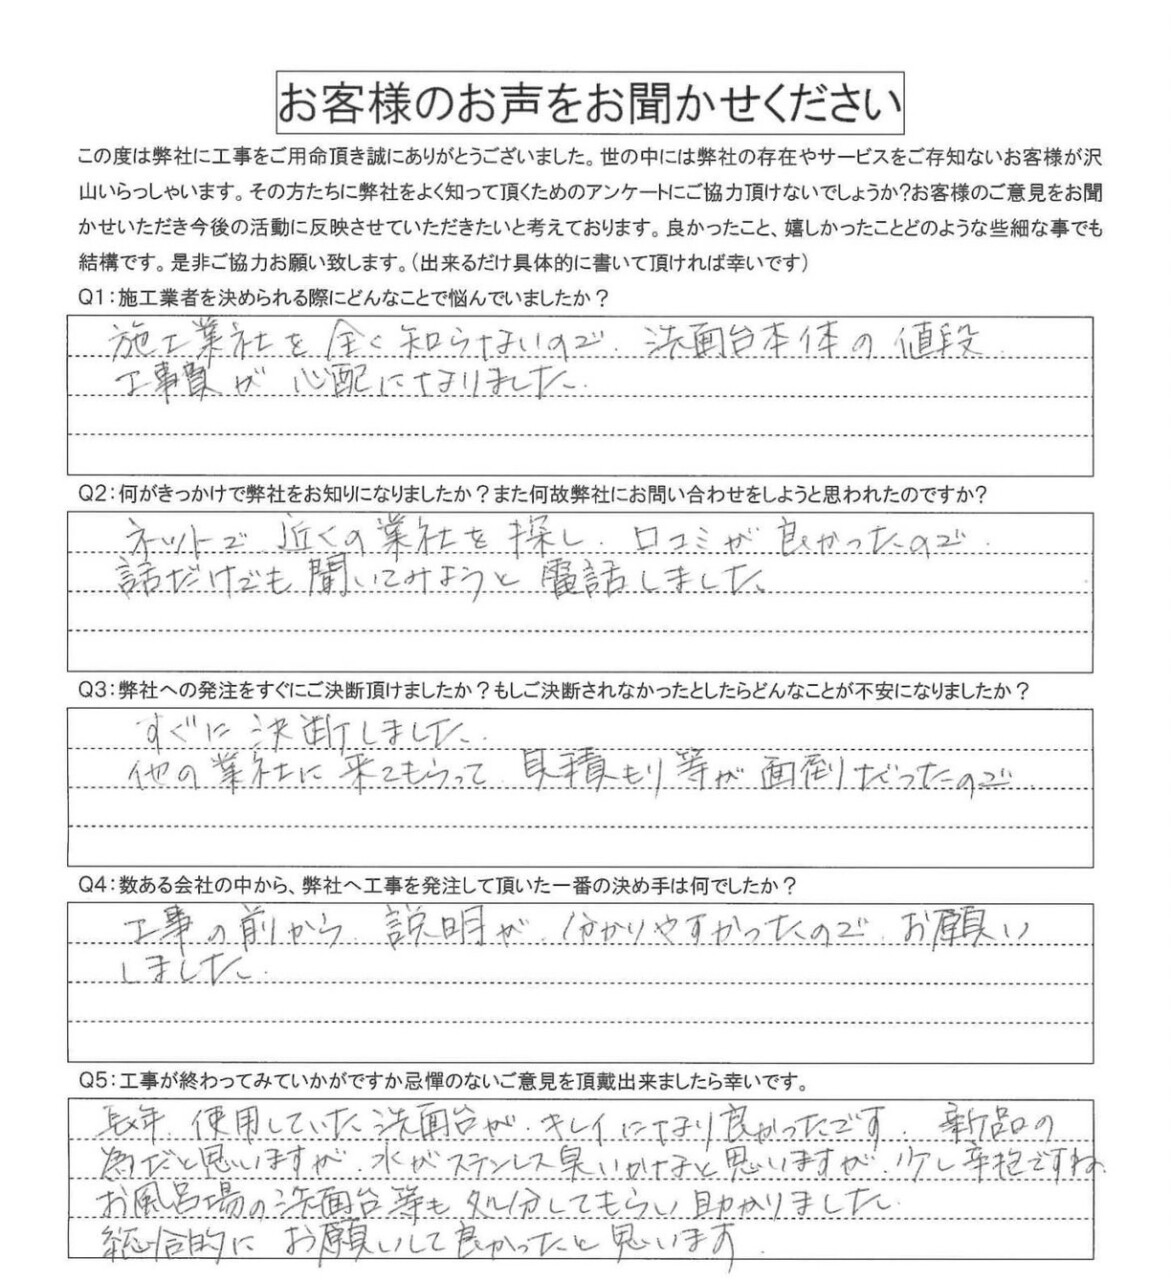 お客様のお声をお聞かせください
この度は弊社に工事をご用命頂き誠にありがとうございました。世の中には弊社の存在やサービスをご存知ないお客様が沢
山いらっしゃいます。その方たちに弊社をよく知って頂くためのアンケートにご協力頂けないでしょうか?お客様のご意見をお聞
かせいただき今後の活動に反映させていただきたいと考えております。良かったこと、嬉しかったことどのような些細な事でも
結構です。是非ご協力お願い致します。(出来るだけ具体的に書いて頂ければ幸いです)
Q1:施工業者を決められる際にどんなことで悩んでいましたか?
施工業社を全く知らないので、洗面台本体の値段、
工事費が心配になりました。
Q2:何がきっかけで弊社をお知りになりましたか?また何故弊社にお問い合わせをしようと思われたのですか?
ネットで近くの業社を探し、口コミが良かったので、
話だけでも聞いてみようと電話しました。
Q3:弊社への発注をすぐにご決断頂けましたか?もしご決断されなかったとしたらどんなことが不安になりましたか?
すぐに決断しました。
他の業社に来てもらって、見積もり等が面倒だったので。
Q4:数ある会社の中から、弊社へ工事を発注して頂いた一番の決め手は何でしたか?
工事の前から、説明が、分かりやすかったので、お願い
しました。
Q5:工事が終わってみていかがですか忌憚のないご意見を頂戴出来ましたら幸いです。
長年、使用していた洗面台が、キレイになり良かったです。新品の
為だと思いますが、水がステンレス臭いかなと思いますが、少し辛抱ですね。
お風呂場の洗面台等も処分してもらい助かりました。
総合的にお願いして良かったと思います。